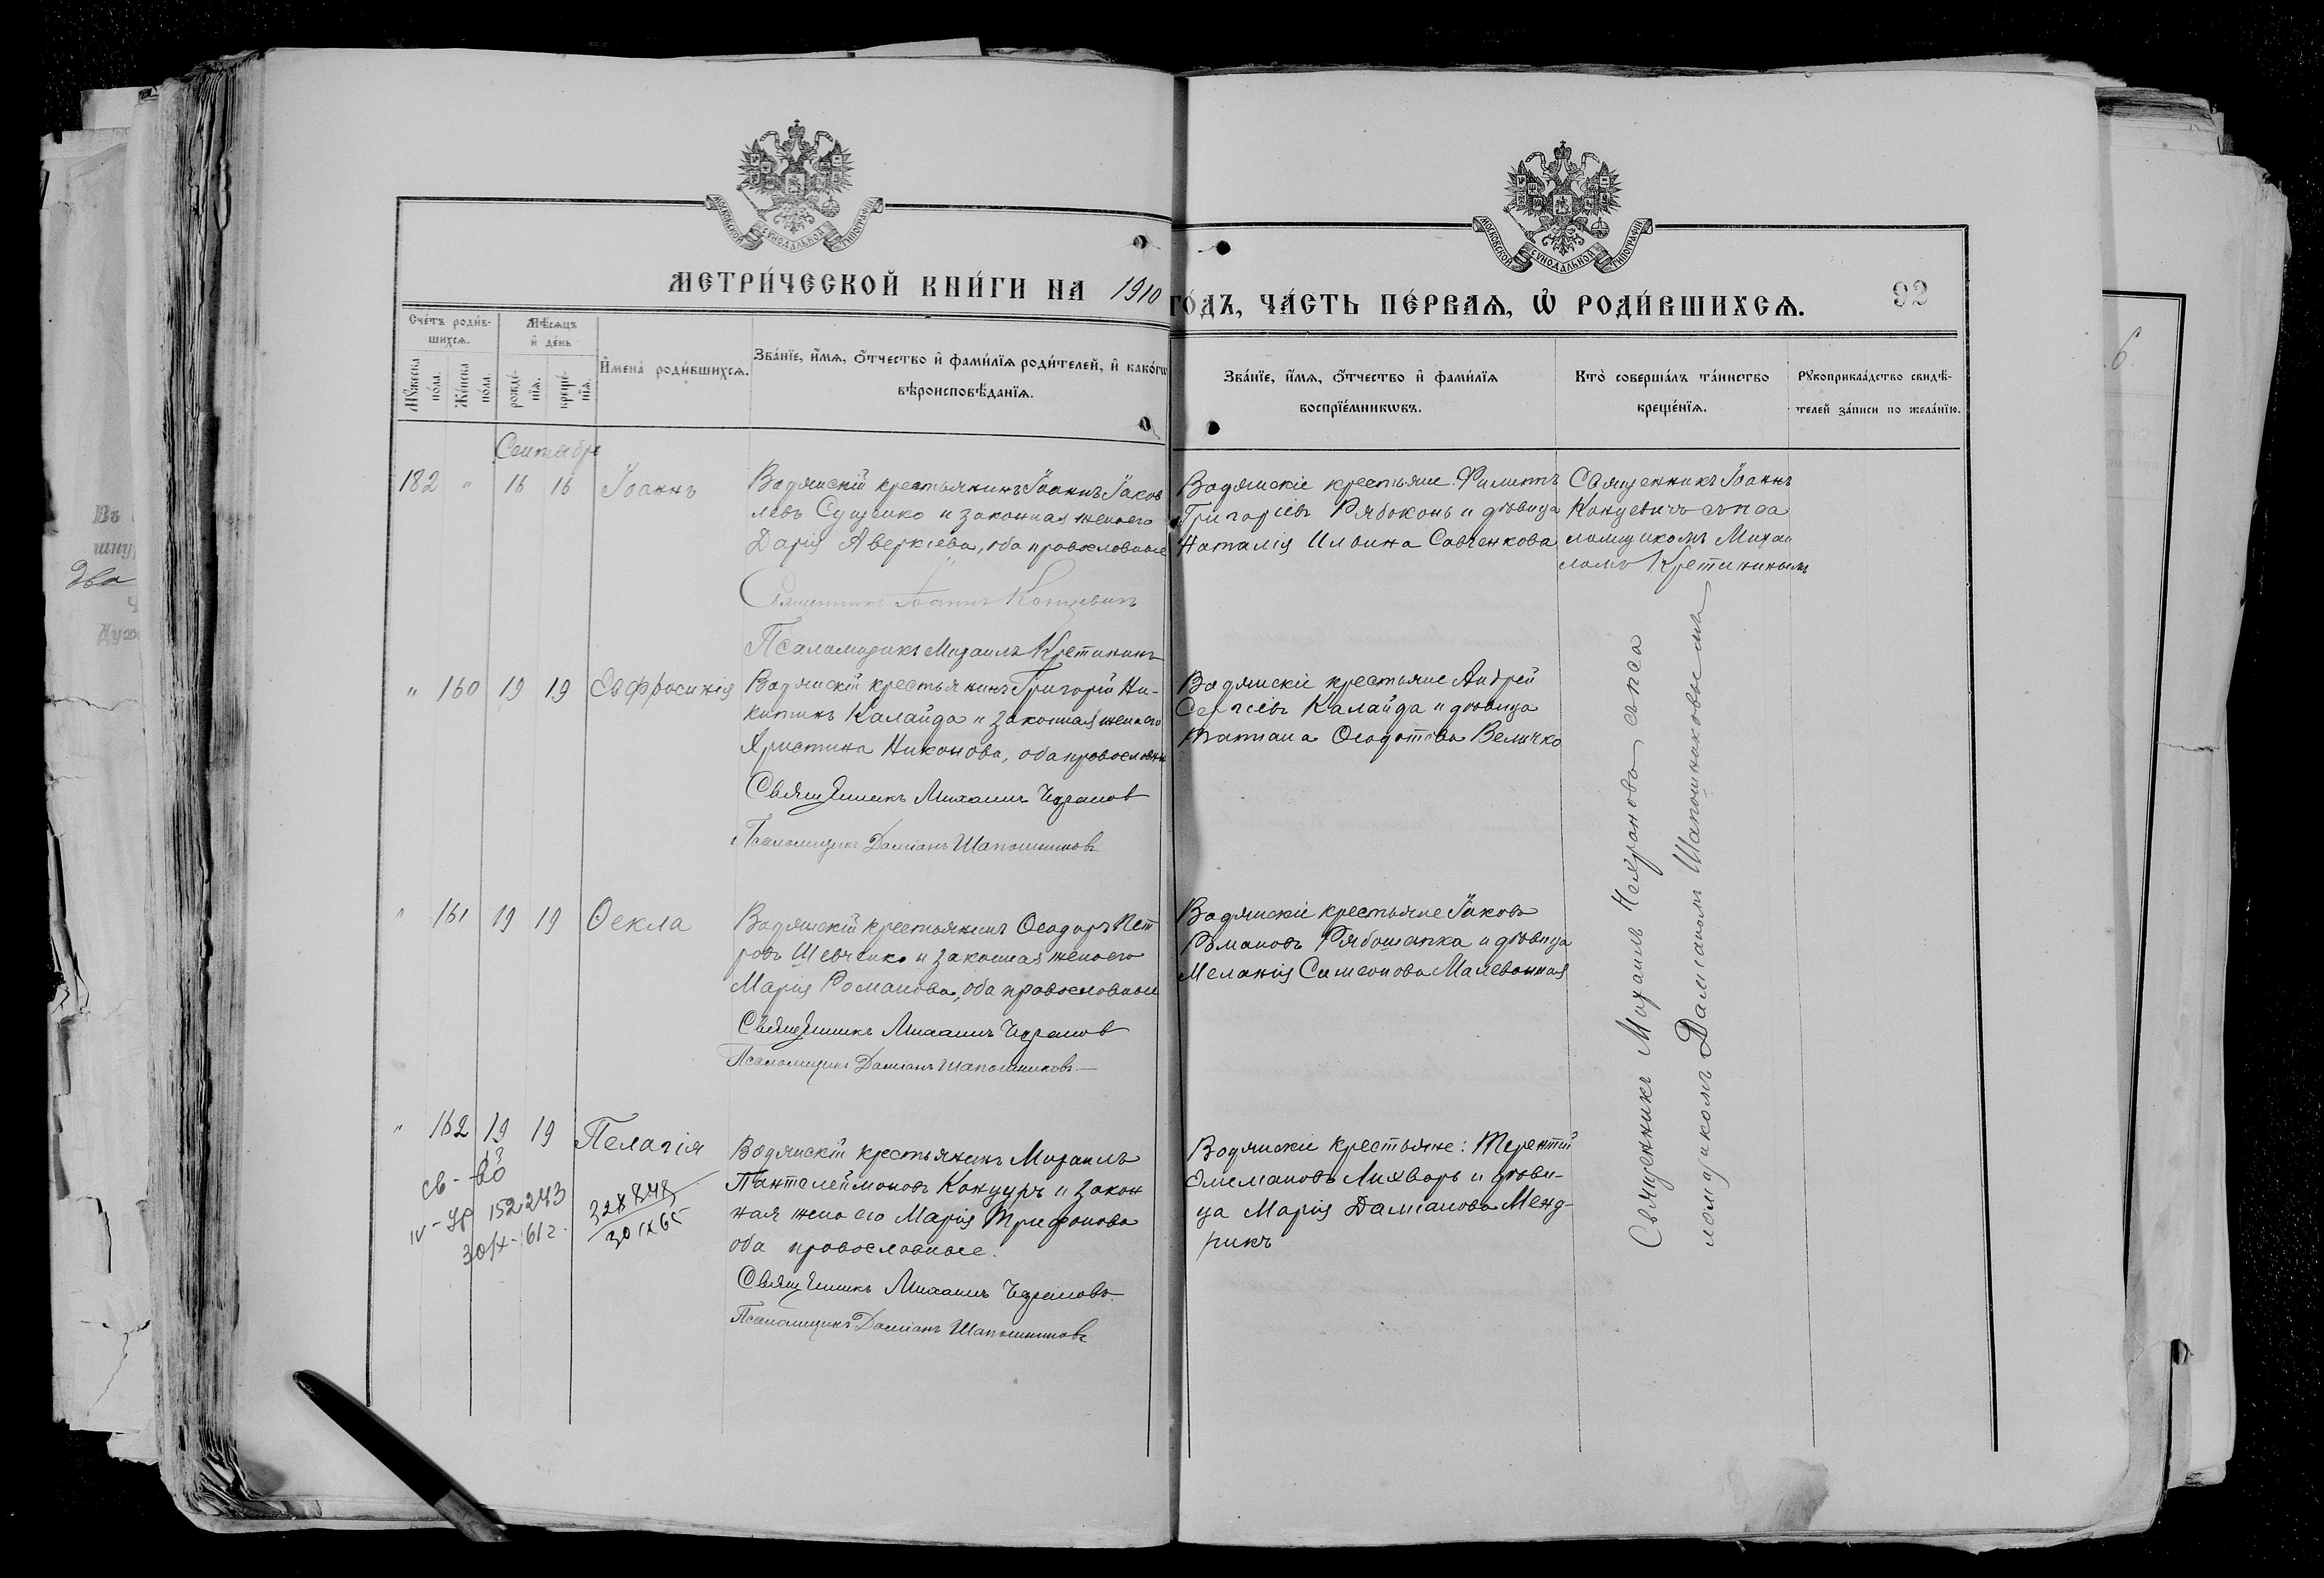 МОСКОВСКОЙ СѴНОДАЛЬНОЙ ТИПОГРАФІИ
МОСКОВСКОЙ СѴНОДАЛЬНОЙ ТИПОГРАФІИ
МЕТРИ́ЧЕСКОЙ КНИ́ГИ НА 1910
ГО́ДЪ, ЧА́СТЬ ПЕ́РВАѦ, Ѡ҆ РОДИ́ВШИХСѦ.
92
Сче́тъ роди́в-
шихсѧ.
Мѣ́сѧцъ
и҆ де́нь
Мꙋ́жеска
по́ла.
Же́нска
по́ла.
рожде́-
нїѧ.
креще́-
нїѧ.
И҆мена̀ роди́вшихсѧ.
Зва́нїе, и҆́мѧ, ѻ҆́тчество и҆ фами́лїѧ роди́телей, и҆ како́гѡ
вѣроисповѣ́данїѧ.
Зва́нїе, и҆́мѧ, ѻ҆́тчество и҆ фами́лїѧ
воспрїе́мникѡвъ.
Кто̀ соверша́лъ та́инство
креще́нїѧ.
Рꙋкоприкла́дство свидѣ́-
телей за́писи по жела́нїю.
Сентябрь
182 " 16 16 Іоаннъ
Водянскій крестьянинъ Іоаннъ Іаков
левъ Сущенко и законная жена его
Дарія Аверкіева, оба православные
Священникъ Іоаннъ Концевичъ
Псаломщикъ Михаилъ Кретининъ
Водянскіе крестьяне Филиппъ
Григоріевъ Рябоконь и дѣвица
Наталія Ильина Савченкова
Священникъ Іоаннъ
Концевичъ съ пса
ломщикомъ Михаи
ломъ Кретининымъ
" 160 19 19 Евфросинія
Водянскій крестьянинъ Григорій Ни-
китинъ Калайда и законная жена его
Христина Никонова, оба православн
Священникъ Михаилъ
Псаломщикъ Даміанъ Шапошниковъ
Водянскіе крестьяне Андрей
Сергѣевъ Калайда и дѣвица
Татіана Ѳеодотова Величко
" 161 19 19 Ѳекла
Водянскій крестьянинъ Ѳеодоръ Пет
ровъ Шевченко и законная жена его
Марія Романова, оба православные
Священникъ Михаилъ
Псаломщикъ Даміанъ Шапошниковъ
Водянскіе крестьяне Іаковъ
Романовъ Рябошапка и дѣвица
Меланія Симеонова Малеванная
" 162 19 19 Пелагія
св-во
IV-УР 152243
30/X-61г.
328848
30 IX 65
Водянскій крестьянинъ Михаилъ
Пантелеймоновъ Кондуръ и закон
ная жена его Марія Трифонова
оба православные.
Священникъ Михаилъ
Псаломщикъ Даміанъ Шапошниковъ
Водянскіе крестьяне: Терентій
Емельяновъ Лихваръ и дѣви-
ца Марія Даміанова Менд-
рикъ
Священникъ Михаилъ съ пса
ломщикомъ Даміаномъ Шапошниковымъ